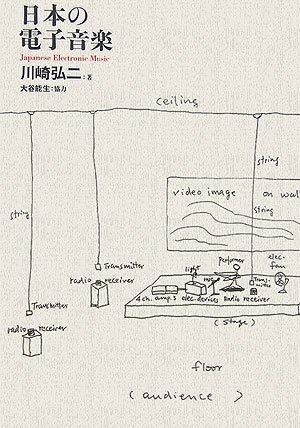 日本の
電子音楽
Japanese Electronic Music
川崎弘二:著
大谷能生:協力
ceiling
string
string
video image on wall
string
string
performer
elec-
fan
light
Transmitter
radio receiver
4ch. amp.s elec. devices Radio receiver
(stage)
Transmitter
radio receiver
floor
(audience)